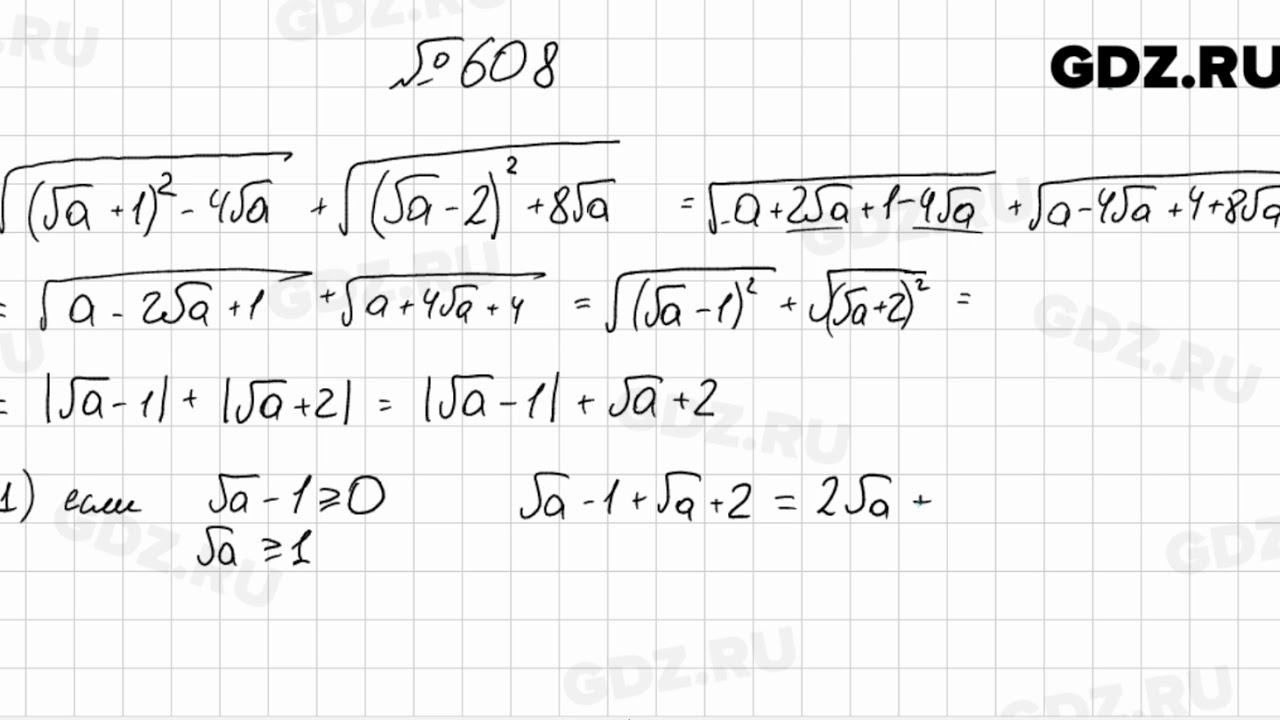 №608
GDZ.RU
√((√a + 1)² - 4√a) + √((√a - 2)² + 8√a) = √(a + 2√a + 1 - 4√a) + √(a - 4√a + 4 + 8√a
= √(a - 2√a + 1) + √(a + 4√a + 4) = √((√a - 1)²) + √((√a + 2)²) =
= |√a - 1| + |√a + 2| = |√a - 1| + √a + 2
1) если √a - 1 ⩾ 0 √a - 1 + √a + 2 = 2√a +
√a ⩾ 1